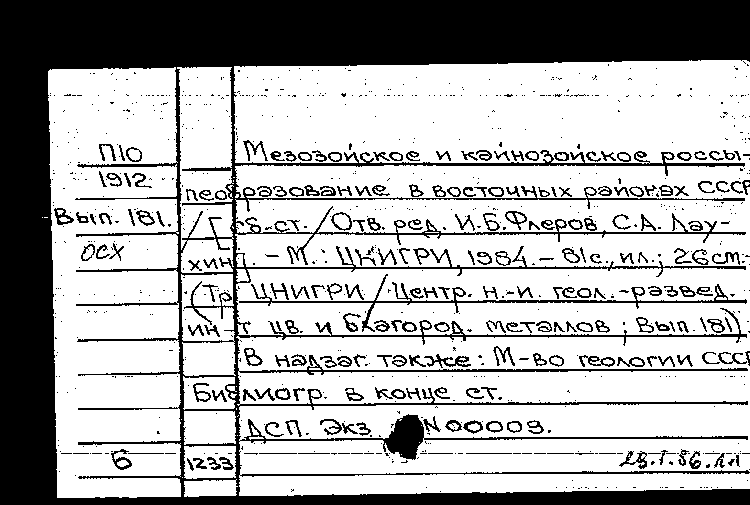 П10 Мезозойское и кайнозойское россы-
1912 пеобразование в восточных районах СССР
Вып. 181. / [сб. ст. / Отв. ред. И.Б.Флеров, С.А. Лау-
осх хин]. – М.: ЦНИГРИ, 1984. – 81с., ил.; 26см.-
(Тр. ЦНИГРИ / Центр. н.-и. геол.-развед.
ин-т цв. и благород. металлов; Вып. 181)
В надзаг. также: М-во геологии СССР
Библиогр. в конце ст.
ДСП. Экз. N00009.
Б 1233 28.I.86.